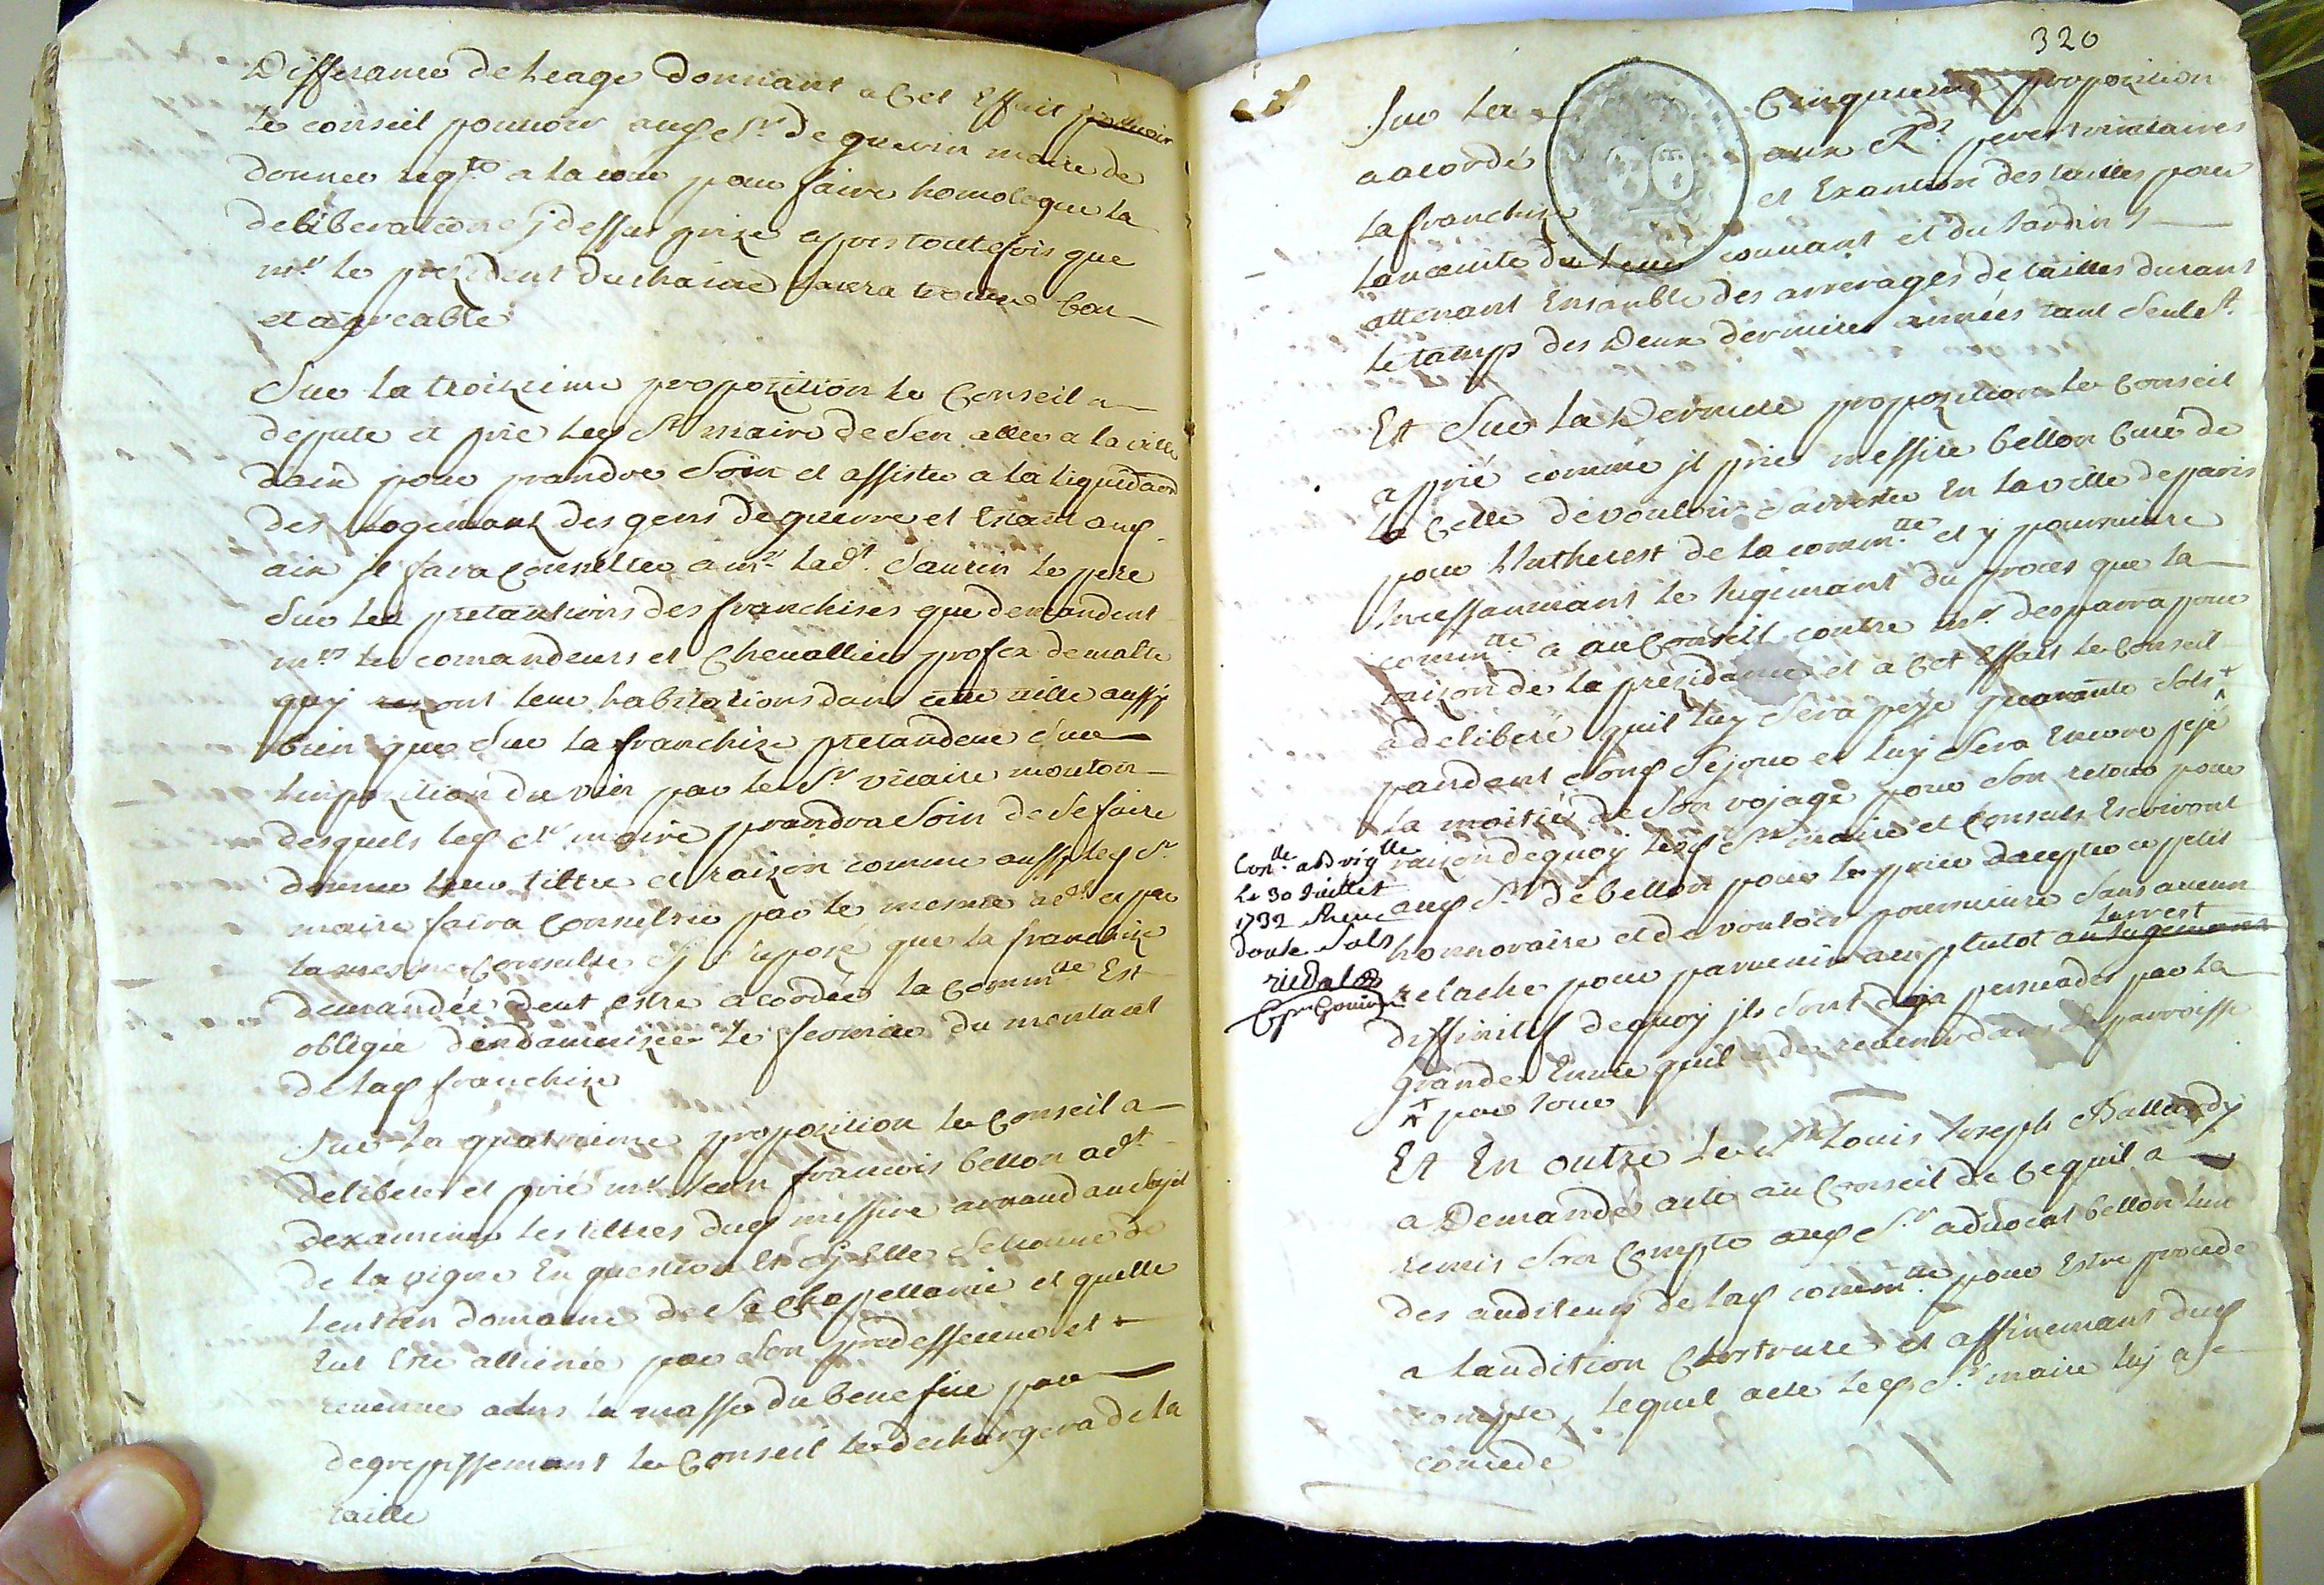 Differance de leage donnant a Cet Effait pouvoir
le conseil pouuoir aud Sr de guerin maire de
donner reqte a la cour pour faire homologuer la
deliberation cy dessus prize apres toutefois que
mr le president duchaine laura trouuée bon
et agreable
Sur la troizieme propozition le Conseil a
depute et prie led Sr maire de sen aller a la ville
daix pour prandre Soin et assister a la liquidaon
des Logemant des gens de guerre et Estant aud
aix il faira Consulter a mr ladt Saurin le pere
Sur les pretantions des franchises que demandent
mrs les comandeurs et Cheualliers profes de malte
quy ont leur habitations dans cette ville aussy
bien que Sur la franchize pretandeue Sur
limpozition du vin par le Sr vicaire mouton
desquels led Sr maire prandra Soin de se faire
donner leur tiltre et raizon comme aussy led Sr
maire faira Consulter par le mesme adt et par
la mesme Consulte Sy Supozé que la franchize
demandée deut estre acordée la Commtte Est
obligée dendamnizer le fermier du montant
de lad franchize
Sur la quatrieme propozition le Conseil a
deliberé et prié mr Jean francois bellon adt
dexaminer les tiltres dud messire arnaud au Sujet
de la vigne En question Et Sy Elle Se trouue de
lentien domaine de Sa Chapellanie et quelle
Eut Ette allienée par Son predessesseur et
reuenue a la masse du benefice par
degrepissemant le Conseil le dechargera de la
taille
320
Sur la Cinquieme propozition
a acordé aux Rds peres trinitaires
la franchize et Exantion des tailles pour
lanceinte du leur couuant et du Jardin
attenant Ensamble des arrerages de tailles durant
le tamps des Deux dernieres années tant Seulet
Et Sur la Derniere propozition le Conseil
a prié comme il prie messire bellon Curé de
la Celle de vouloir Sarrester En la ville de paris
pour Lintherest de la commtte et y poursuiure
Incessammant le Jugemant du proces que la
commtte a au Conseil contre mr desparra pour
raizon de la presidance et a Cet Effait le Conseil
a deliberé quil luy Sera peyé quarante Sols +
pandent Sond Sejour et luy Sera Encore peyé
La moitié de Son voyage pour Son retour pour
raizon dequoy lesd Srs maire et Consuls Escriront
aud Sr de bellon pour le prier dacepter ce petit
honnoraire et de vouloir poursuiure Sans aucun
relache pour paruenir au plutot au Jugemant
larrest
diffinitif dequoy ils Sont deja persuades par la
grande Enuie quil a de reuenir dans Sa parroisse
+ par Jour
le 30 Juillet
1732
Et En outre le Sr Louis Joseph Ballardy
a Demandé acte au Conseil de Ce quil a
remis Son Compte aud Sr aduocat bellon lun
des auditeurs de lad commtte pour Estre procede
a laudition Clostrure et affinemant dud
compte, lequel acte led Sr maire luy a
concede